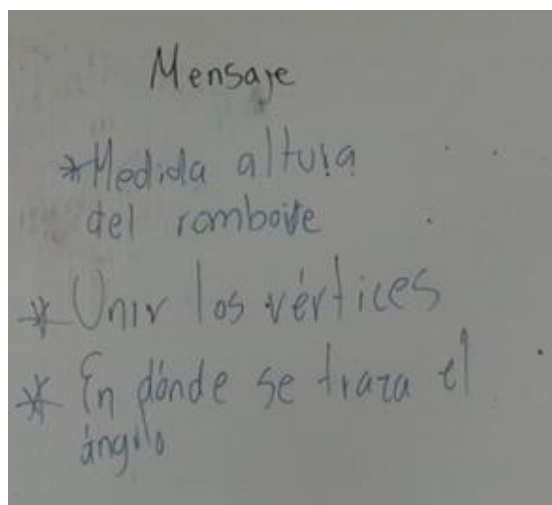 Mensaje
*Medida altura
del romboide
* Unir los vértices
* En dónde se traza el
ángulo